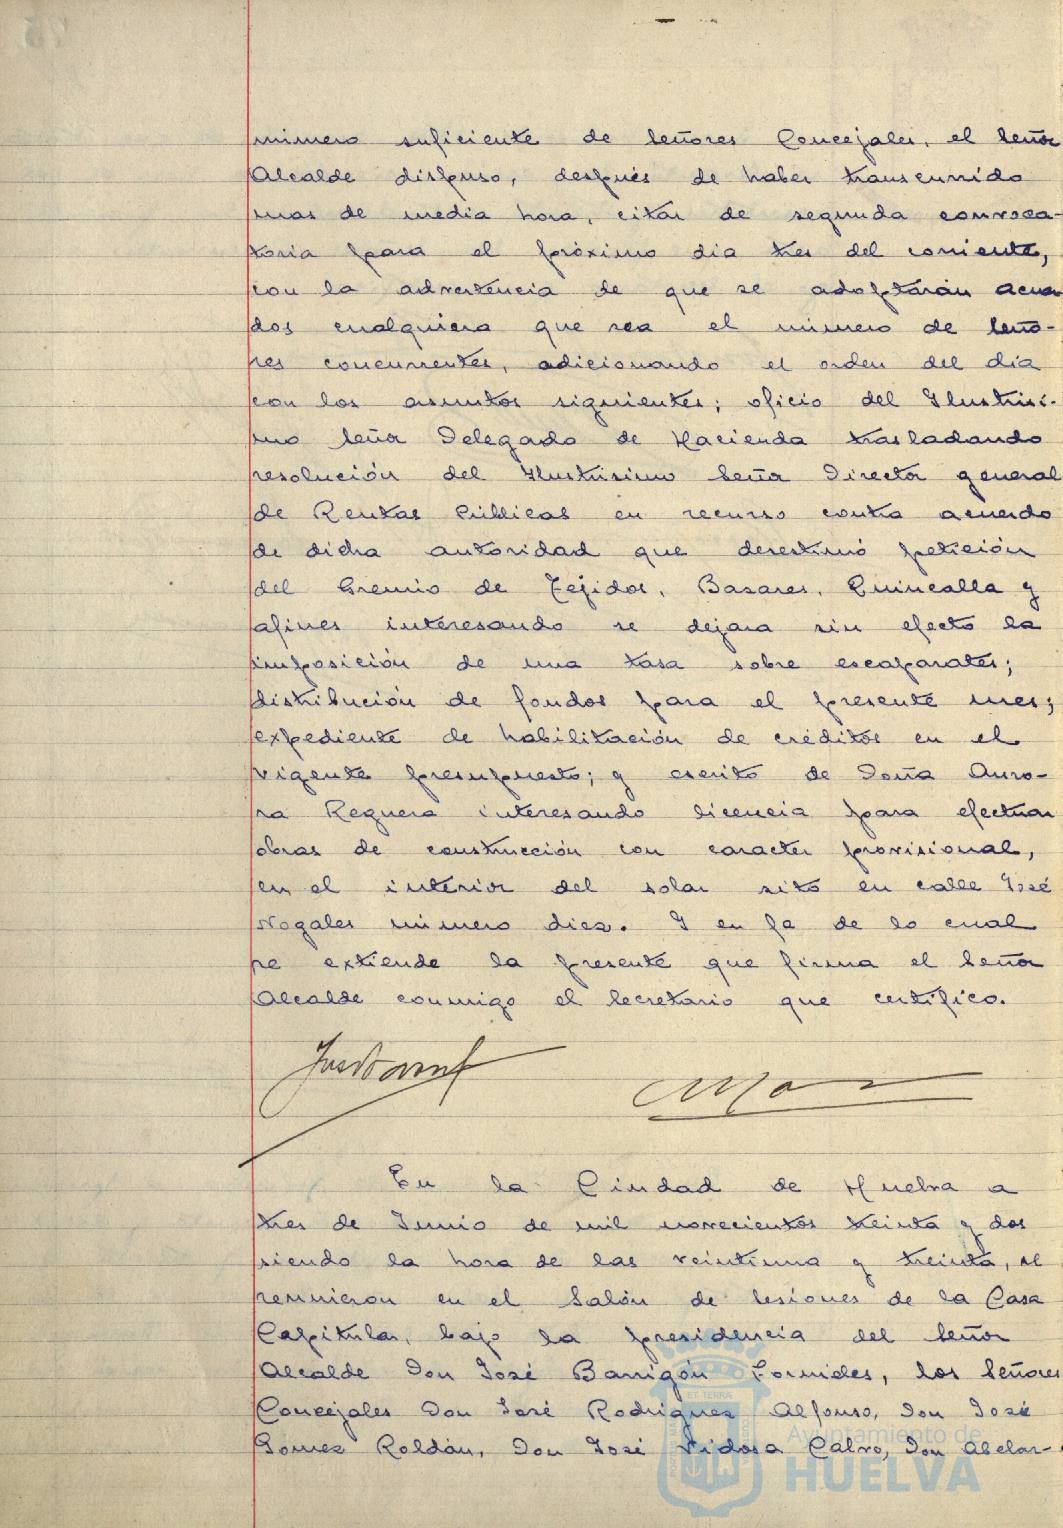 número suficiente de Señores Concejales, el Señor
Alcalde dispuso, después de haber transcurrido
mas de media hora, citar de segunda convoca-
toria para el próximo dia tres del corriente,
con la advertencia de que se adoptarán acuer
dos cualquiera que sea el número de Seño-
res concurrentes, adicionando el orden del dia
con los asuntos siguientes; oficio del Ilustrisi-
mo Señor Delegado de Hacienda trasladando
resolución del Ilustrisimo Señor Director general
de Rentas Públicas en recurso contra acuerdo
de dicha autoridad que desestimó petición
del Gremio de Tejidos, Basares, Quincalla y
afines interesando se dejara sin efecto la
imposición de una tasa sobre escaparates;
distribución de fondos para el presente mes;
expediente de habilitación de créditos en el
vigente presupuesto; y escrito de Doña Auro-
ra Requera interesando licencia para efectuar
obras de construcción con caracter provisional,
en el interior del solar sito en calle José
Nogales número diez. Y en fe de lo cual
se extiende la presente que firma el Señor
Alcalde conmigo el Secretario que certifico.
En la Ciudad de Huelva a
tres de Junio de mil novecientos treinta y dos
siendo la hora de las veintiuna y treinta, se
reunieron en el Salón de Sesiones de la Casa
Capitular, bajo la presidencia del Señor
Alcalde Don José Barrigón Fornieles, los Señores
Concejales Don José Rodriguez Alfonso, Don José
Gomez Roldán, Don José Vidosa Calvo, Don Abelar-
Ayuntamiento de
HUELVA